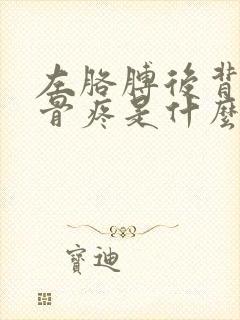 左胳膊後背
骨疼是什麼
寶迪